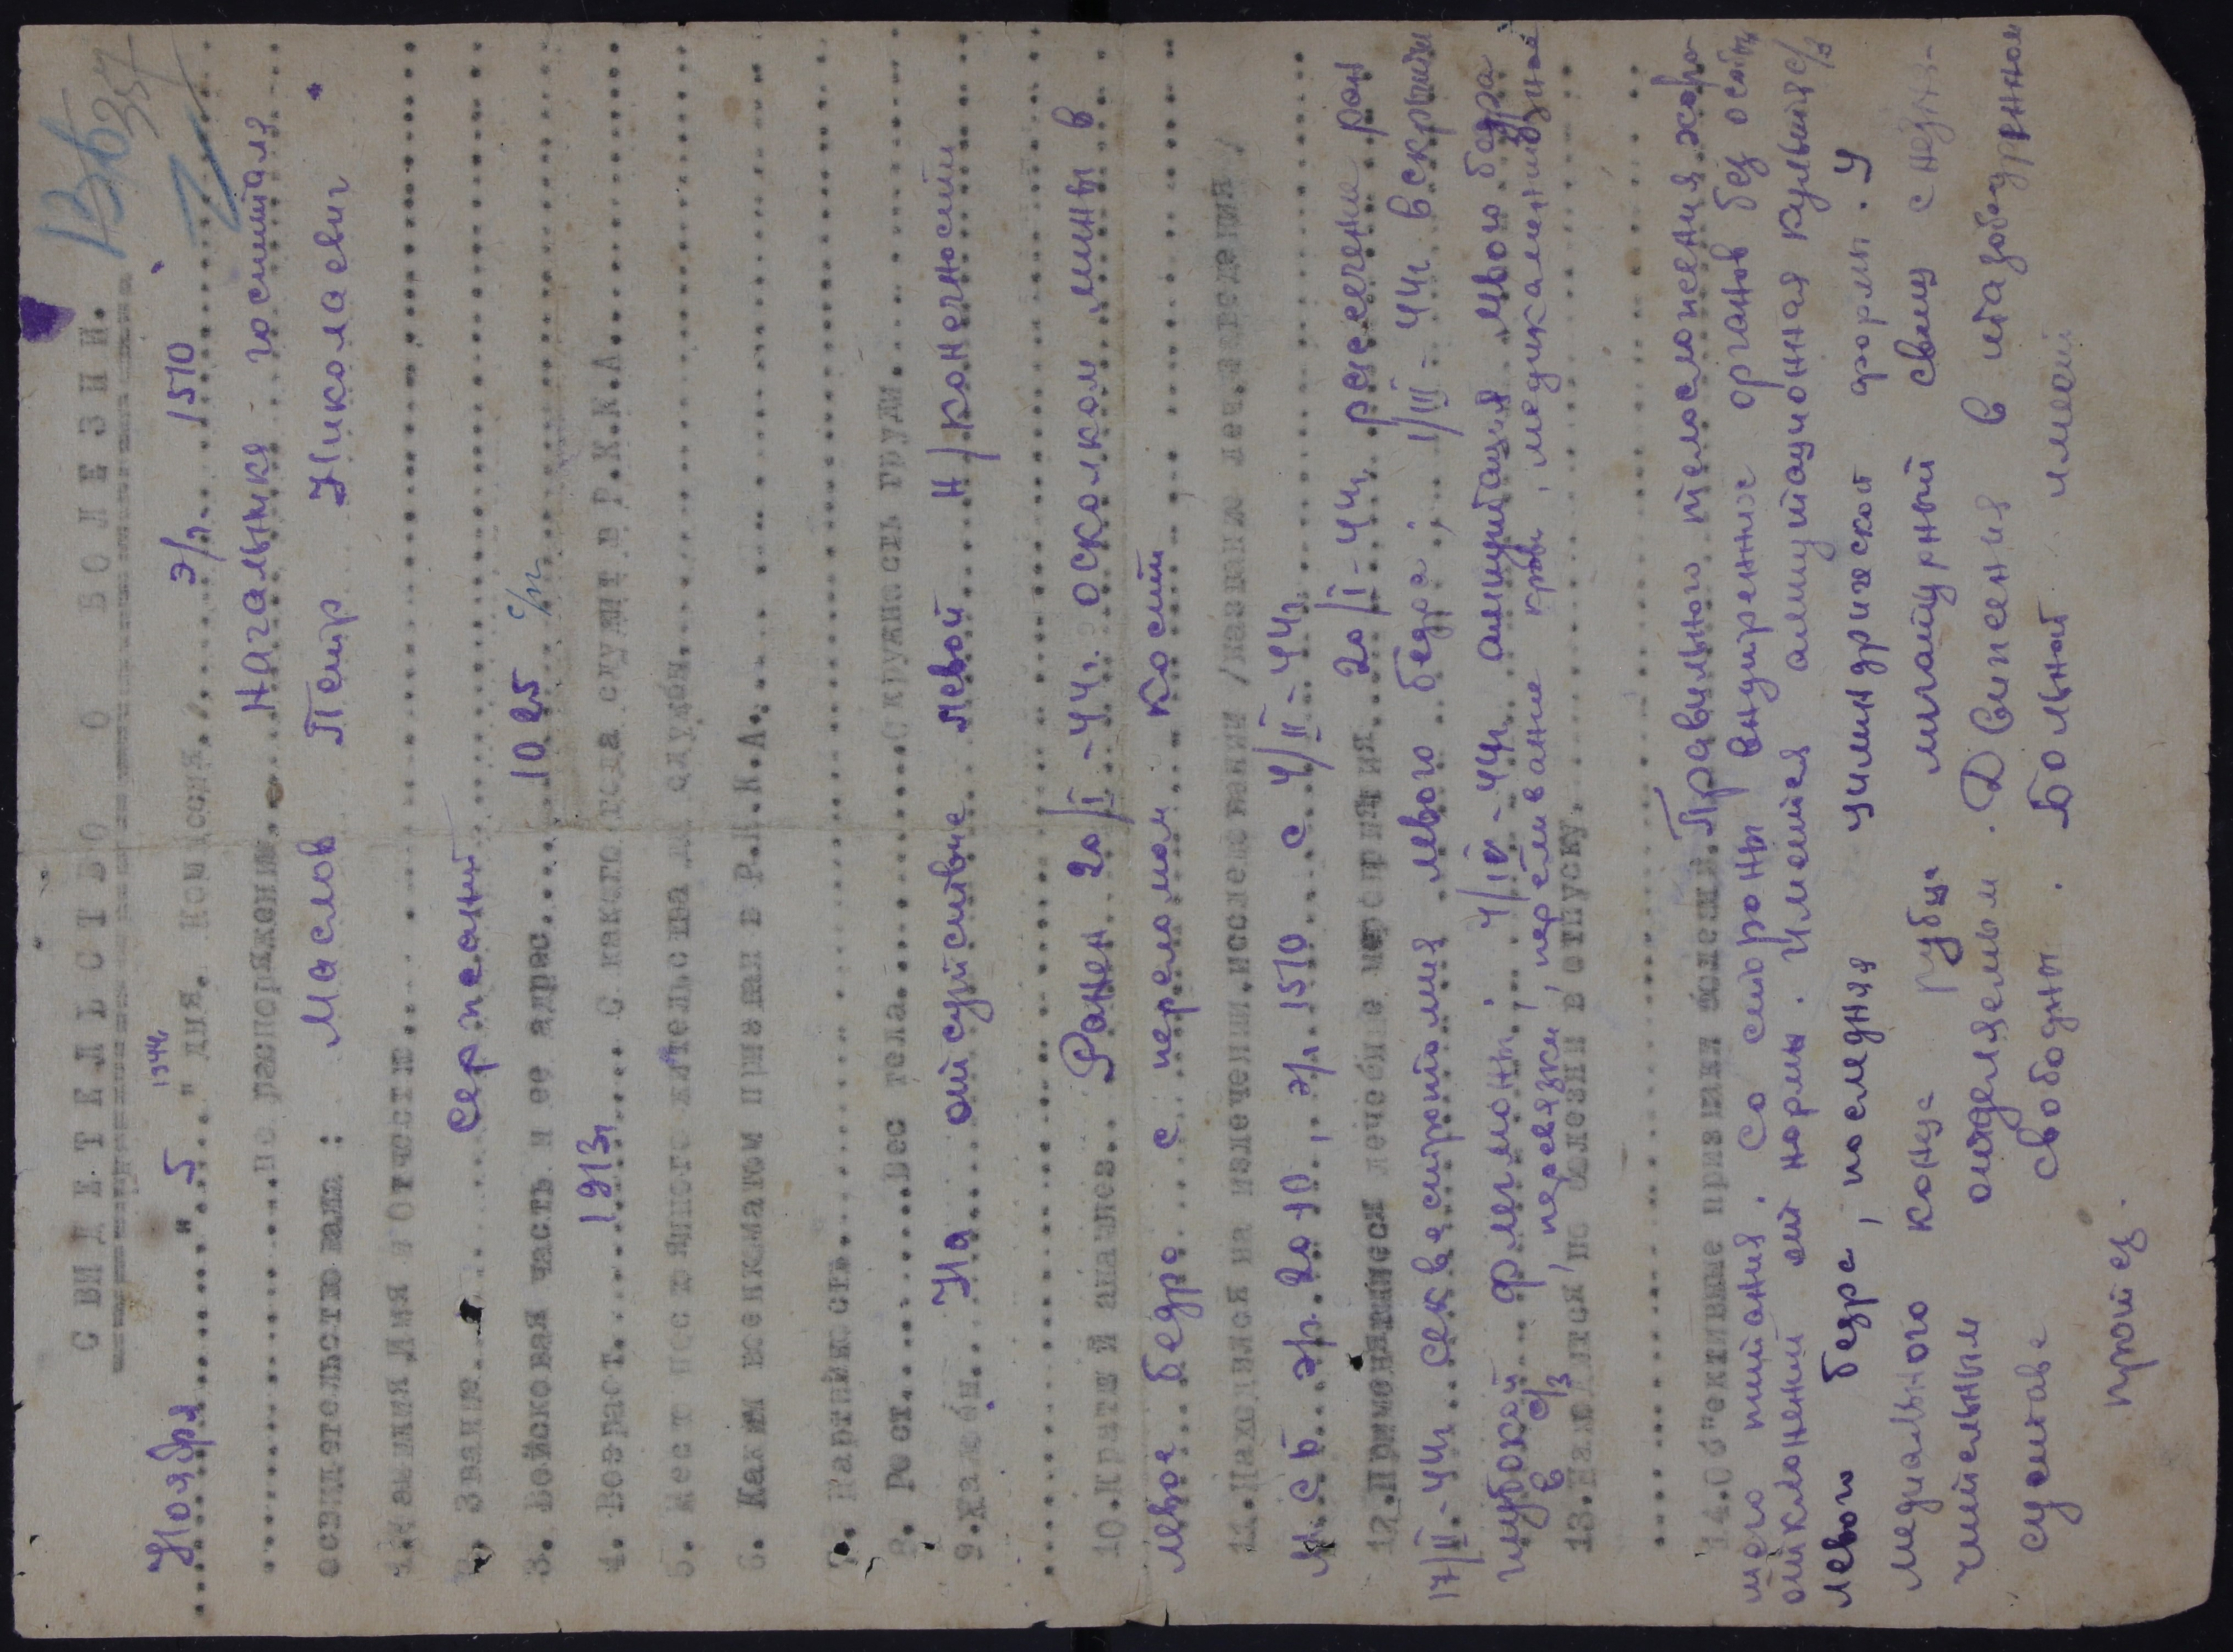 СВИДЕТЕЛЬСТВО О БОЛЕЗНИ.
1944г
Ноября "5" дня. Комиссия э/г. 1570
по распоряжению Начальника госпиталя
освидетельствовала: Маслов Петр Николаевич.
1. Фамилия Имя и Отчество
2. Звание Сержант
3. Войсковая часть и ее адрес 1025 с/п
4. Возраст 1913г С какого года служит в Р.К.К.А.
5. Место постоянного жительства до службы
6. Каким военкоматом призван в Р.К.К.А.
7. Партийность
8. Рост Вес тела Окружность груди
9. Жалобы На отсутствие левой н/конечности
10. Краткий анамнез. Ранен 20/I-44г. осколком мины в
левое бедро с переломом кости
11. Находился на излечении, исследовании /название леч. заведения/
МСБ эг. 2010, эг. 1570 с 4/II-44г
12. Применявшиеся лечебные мероприятия 20/I-44г рассечение ран
17/II-44г секвестротомия левого бедра; 1/III-44г вскрытие
глубокой флегмоны; 4/IV-44г ампутация левого бедра
в с/3, перевязки, переливание крови, медикаментозное
13. Нуждается по болезни в отпуску.
14. Об"ективные признаки болезни. Правильного телосложения хоро-
шего питания. Со стороны внутренние органов без особых
отклонений от нормы. Имеется ампутационная культя с/3
левого бедра, последняя цилиндрической формы. У
медиального конца рубца лигатурный свищ с незна-
чительным отделяемым. Движения в тазобедренном
суставе свободны. Больной имеет
протез.